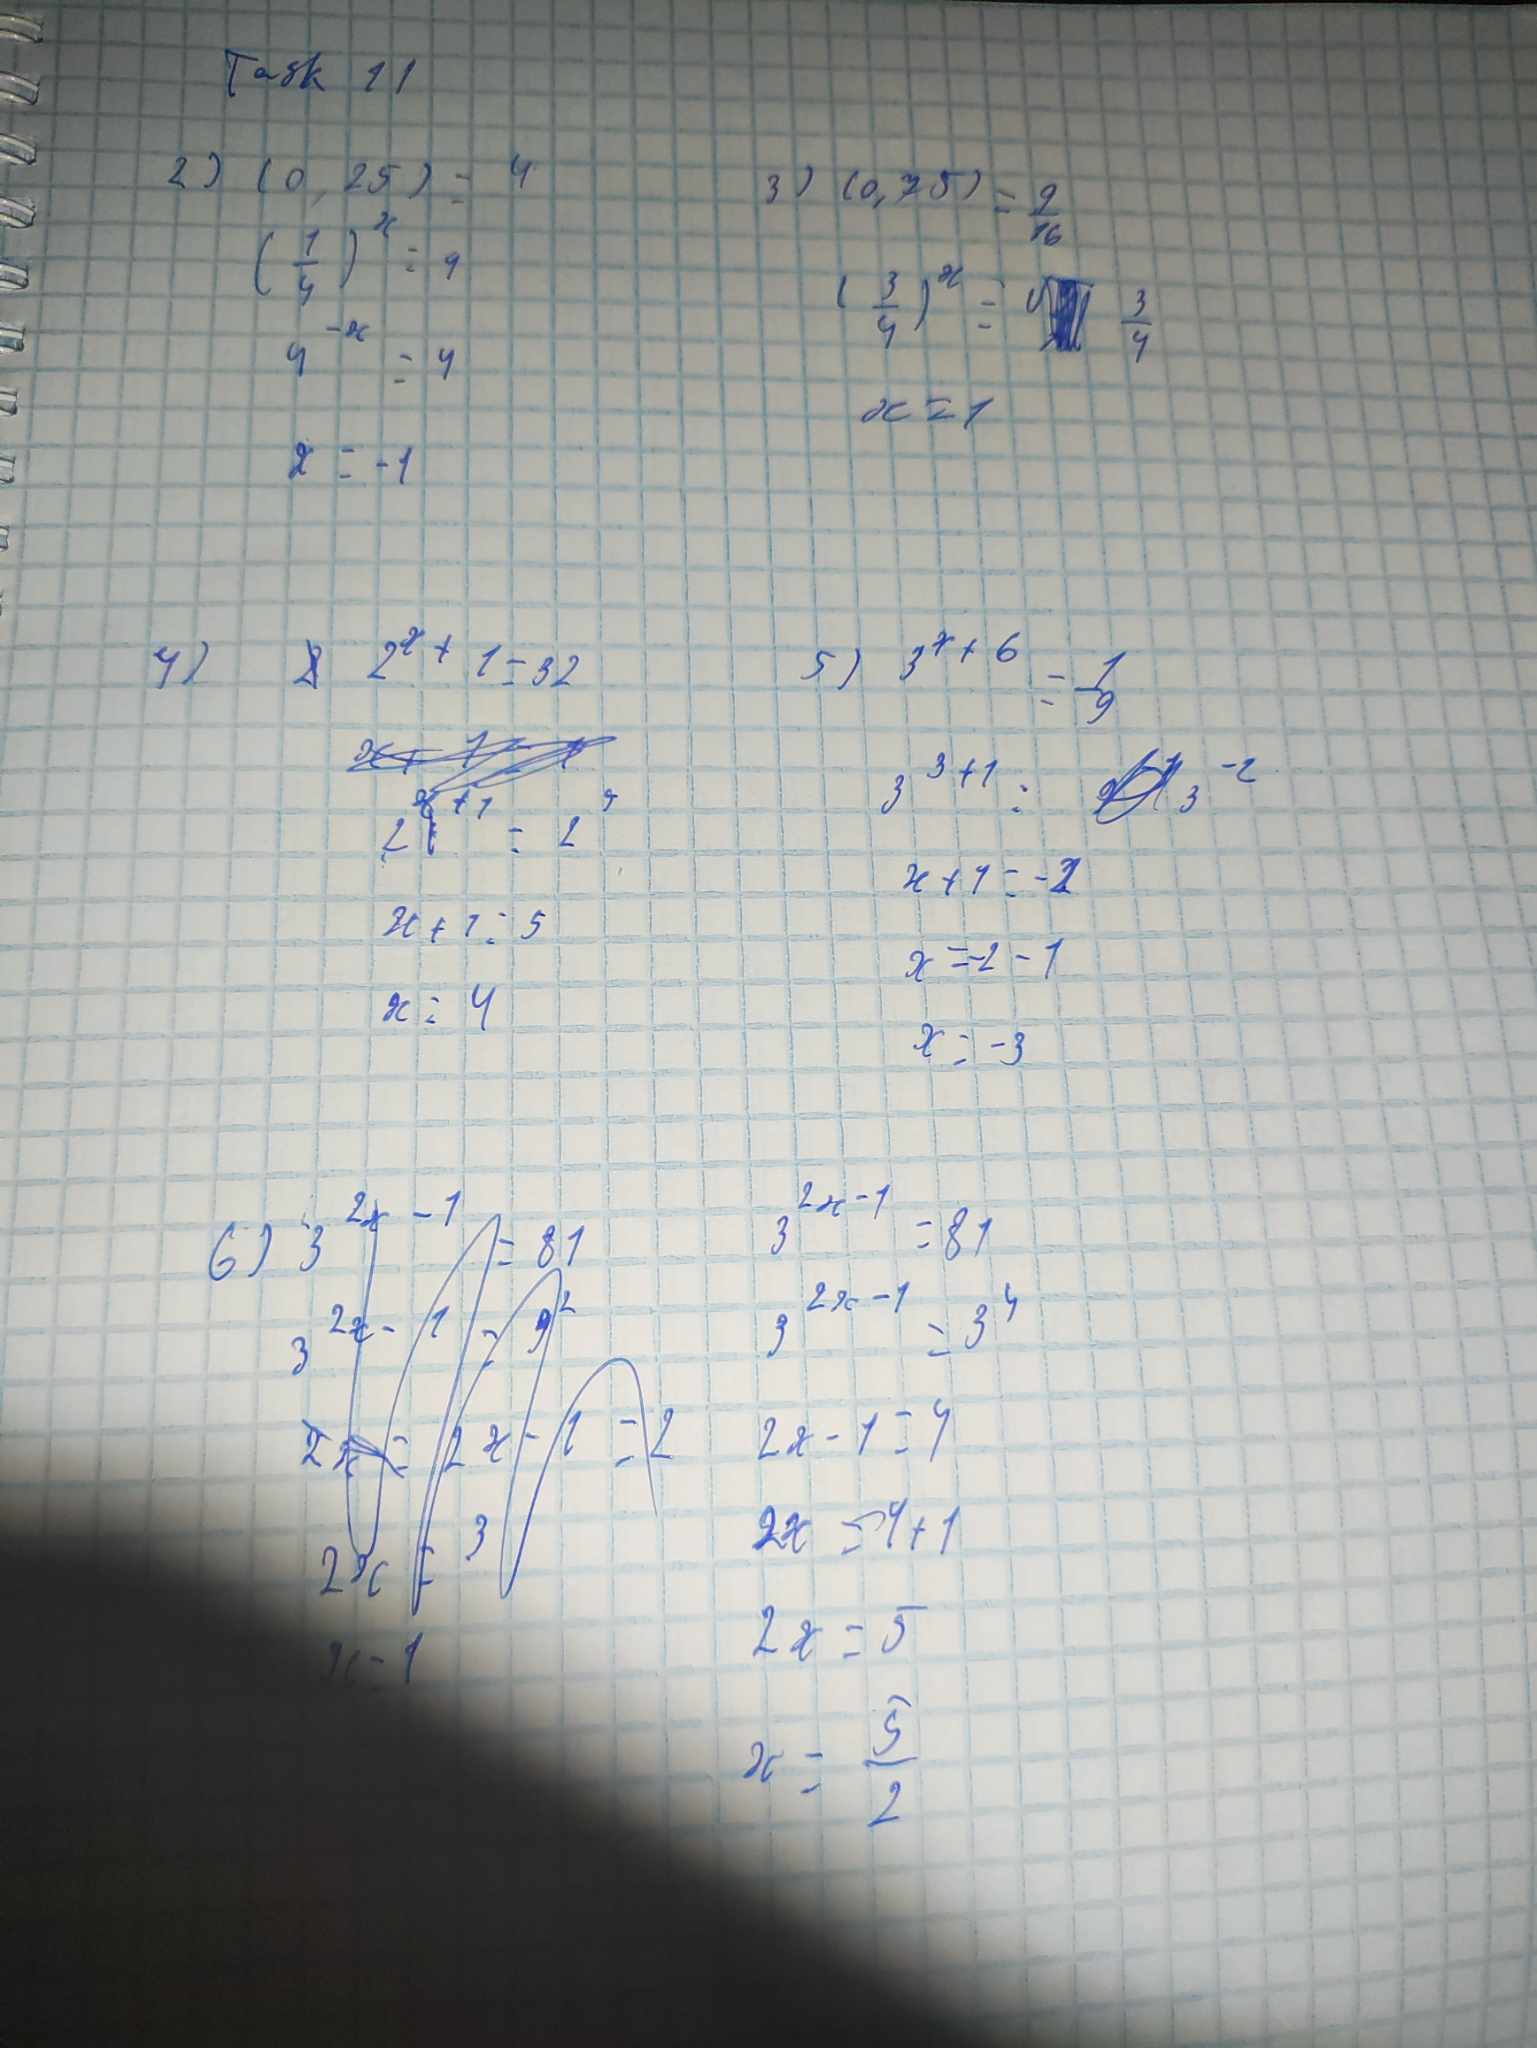 Task 11
2) (0,25) = 4
(1/4)^x = 4
4^-x = 4
x = -1
3) (0,75) = 9/16
(3/4)^x = 3/4
x = 1
4) 2^x + 1 = 32
2^x+1 = 2^5
x + 1 = 5
x = 4
5) 3^x+6 = 1/9
3^3+1 = 3^-2
x + 1 = -2
x = -2 - 1
x = -3
6) 3^2x-1 = 81
3^2x-1 = 9^2
2x = 2x - 1 = 2
2x = 3
x = 1
3^2x-1 = 81
3^2x-1 = 3^4
2x - 1 = 4
2x = 4 + 1
2x = 5
x = 5/2